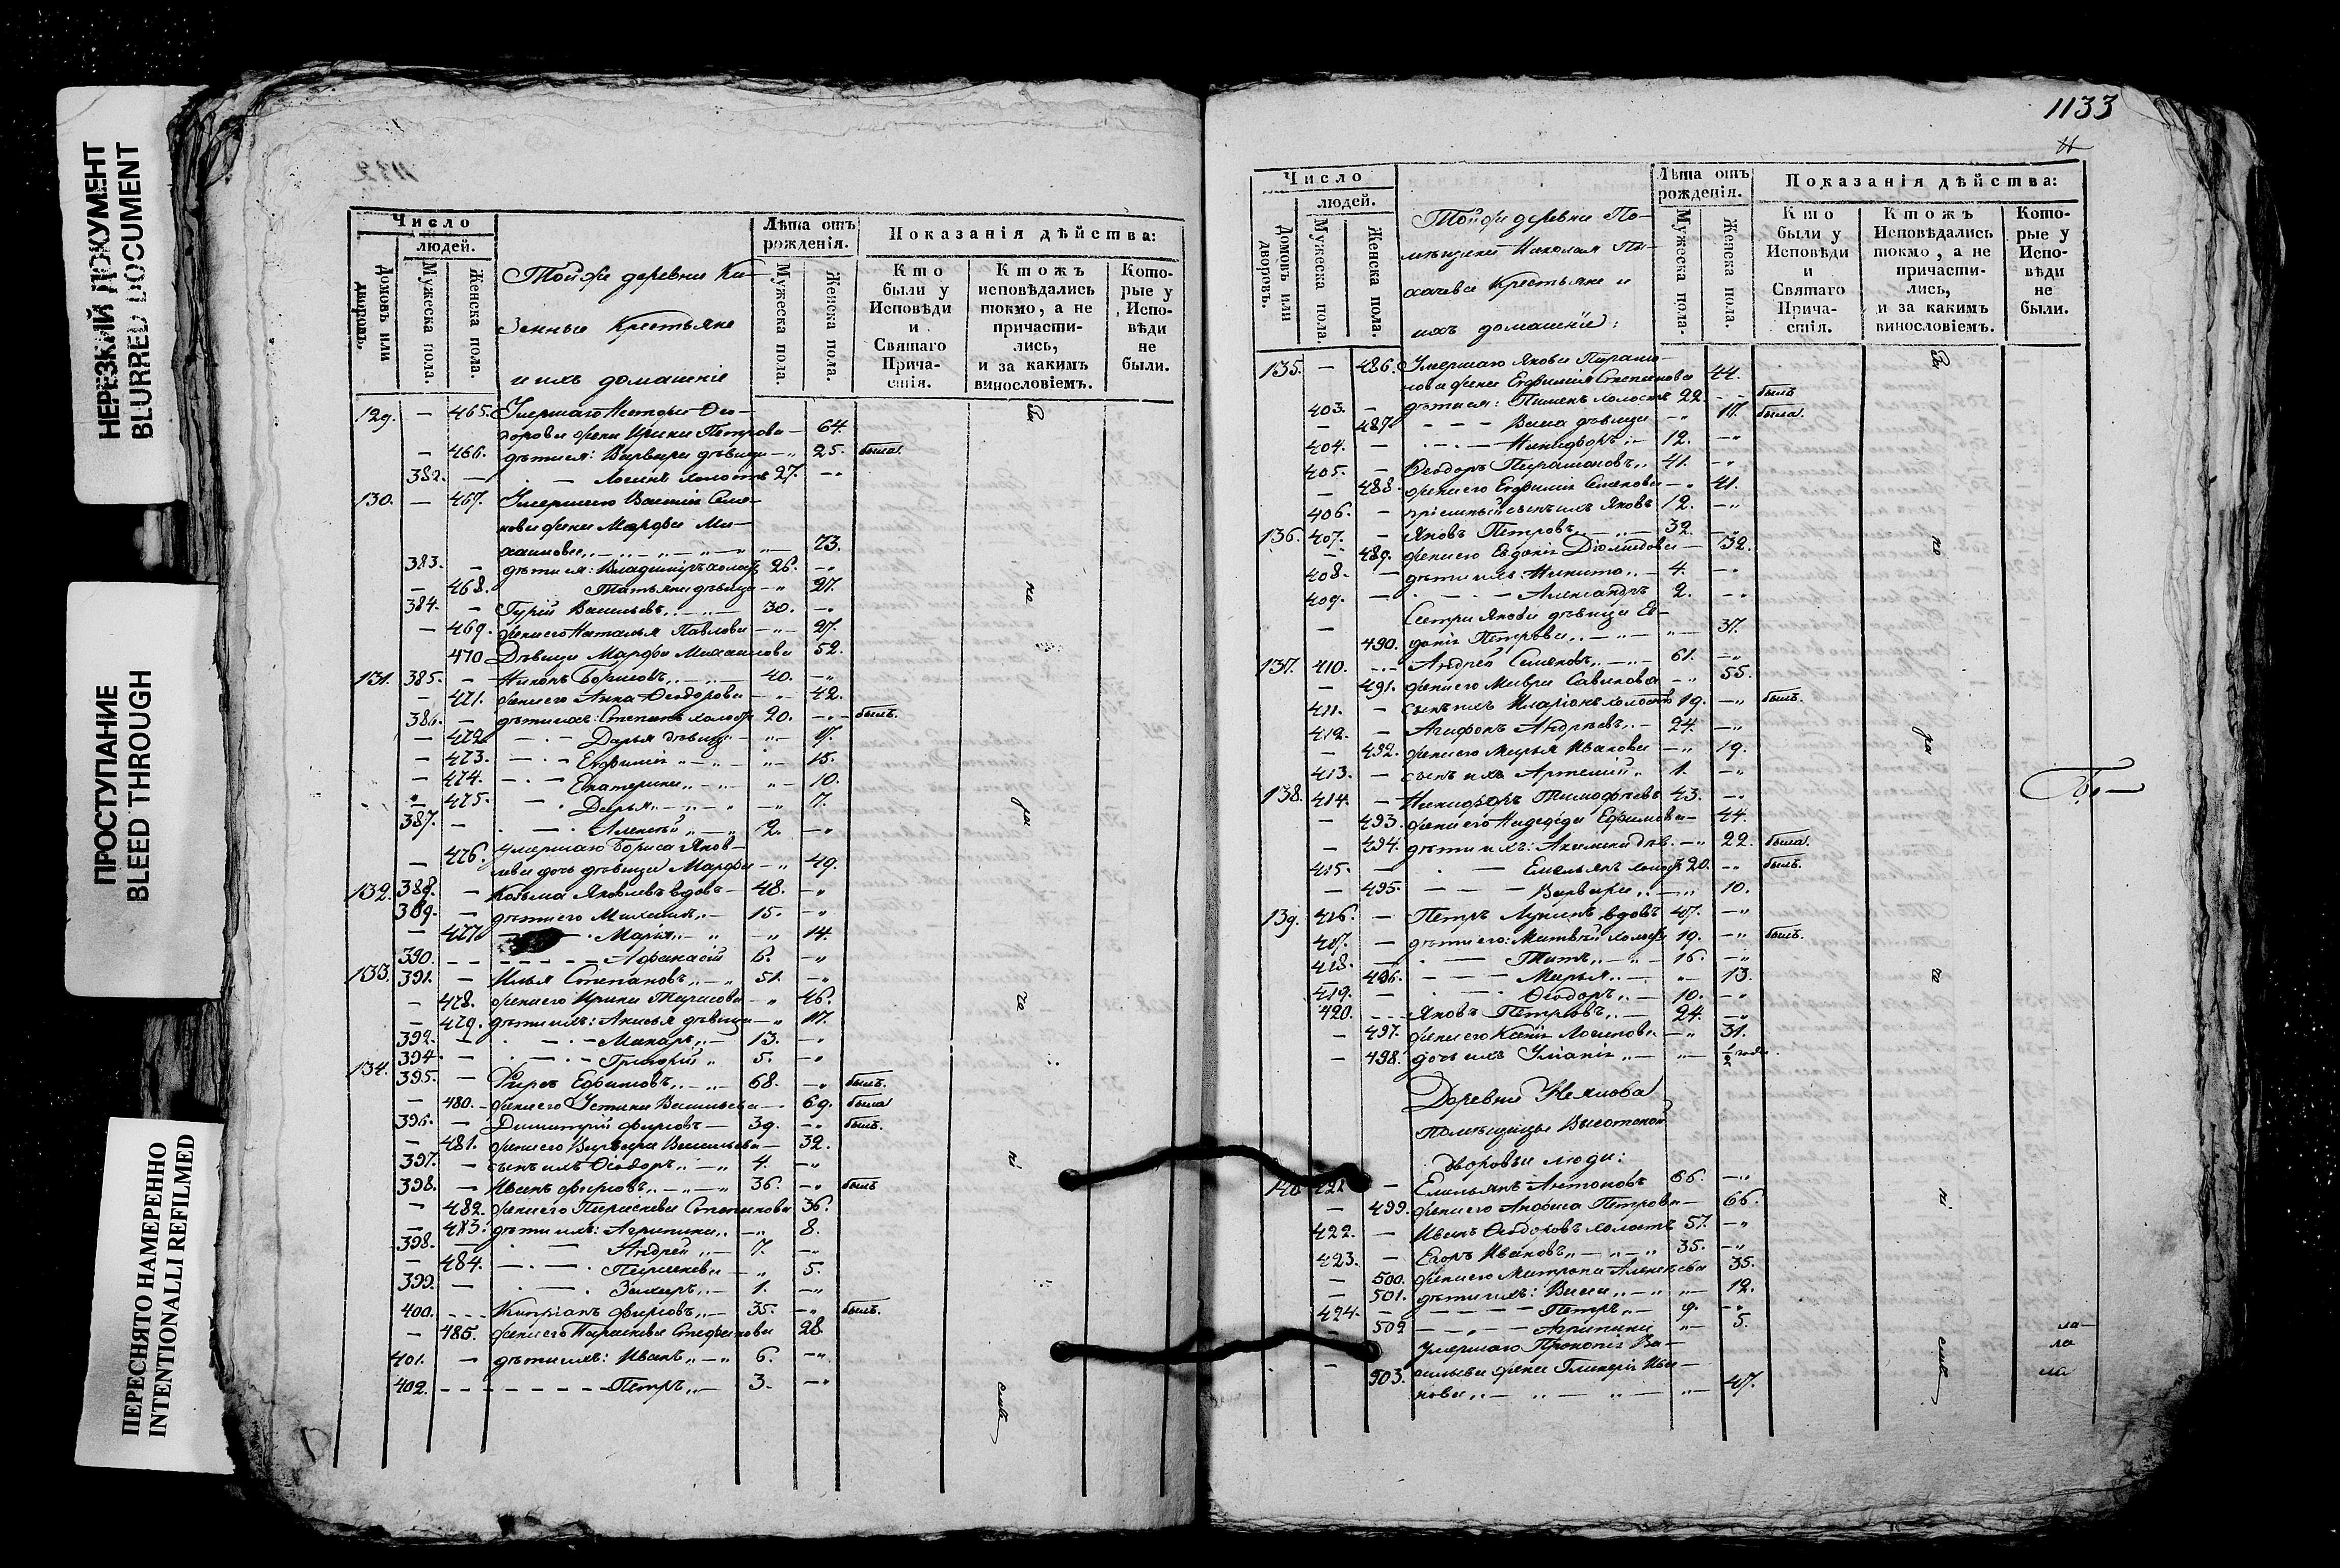 НЕРЕЗКИЙ ДОКУМЕНТ
BLURRED DOCUMENT
ПРОСТУПАНИЕ
BLEED THROUGH
ПЕРЕСНЯТО НАМЕРЕННО
INTENTIONALLI REFILMED
Число
людей.
Домовъ или дворовъ.
Мужеска пола.
Женска пола.
Тойже деревни Ка-
зенные Крестьяне
и ихъ домашніе
Лѣта отъ рожденія.
Мужеска пола.
Женска пола.
Показанія дѣйства:
Кто были у Исповѣди и Святаго Прича-стія.
Ктожъ исповѣдались токмо, а не причасти-лись, и за какимъ винословіемъ.
Кото-рые у Испо-вѣди не были.
129. — 465. Умершаго Нестора Ѳео-
дорова жена Ирина Петрова — 64.
— 466. дѣти ея: Варвара дѣвица — 25. была.
382. — холостъ 27.
130. — 467. Умершаго Василія Семе-
нова жена Марфа Ми-
хаилова 73.
383. — дѣти ея: Владиміръ холостъ 26.
— 468. Татьяна дѣвица — 27.
384. — Гурій Васильевъ 30.
— 469. жена его Наталья Павлова — 27.
470 Дѣвица Марфа Михаилова 52.
131. 385. — Никонъ Борисовъ 40.
— 471. жена его Анна Ѳеодорова — 42.
386. — дѣти ихъ: Степанъ холостъ 20. — былъ.
— 472. Дарья дѣвица — 17.
— 473. Евфимія 15.
— 474. Екатерина 10.
— 475. Дарья 7.
387. — Алексѣй 2.
— 476. Умершаго Бориса Яков-
лева дочь дѣвица Марфа — 49.
132. 388. — Козьма Яковлевъ вдовъ — 48.
389. — дѣти его Михаилъ — 15.
— 477. Марія 14.
390. Афанасій 6.
133. 391. — Илья Степановъ 51.
— 478. жена его Ирина Тарасова — 46.
— 479. дѣти ихъ: Анисья дѣвица — 17.
392. Макаръ 13.
394. — Григорій 5.
134. 395. — Фирсъ Ефимовъ 68. былъ.
— 480. жена его Устинья Васильева — 69. была
396. — Димитрій Фирсовъ — 39. былъ.
— 481. жена его Варвара Васильева — 32.
397. — сынъ ихъ Ѳеодоръ 4.
398. — Иванъ Фирсовъ 36. былъ
— 482. жена его Параскева Степанова 36.
— 483. дѣти ихъ: Агрипина 8.
398. — Андрей 7.
— 484. Параскева 5.
399. — Захаръ 1.
400. Кипріанъ Фирсовъ 35. былъ.
— 485. жена его Параскева Стефанова 28
401. — дѣти ихъ: Иванъ 6.
402. Петръ 3.
1133
Число
людей.
Домовъ или дворовъ.
Мужеска пола.
Женска пола.
Тойже деревни По-
мѣщика Николая Па-
хачева Крестьяне и
ихъ домашніе:
Лѣта отъ рожденія.
Мужеска пола.
Женска пола.
Показанія дѣйства:
Кто были у Исповѣди и Святаго Прича-стія.
Ктожъ Исповѣдались токмо, а не причасти-лись, и за какимъ винословіемъ.
Кото-рые у Испо-вѣди не были.
135. — 486. Умершаго Якова Парамо-
нова жена Евфимія Степанова 44.
403. — дѣти ея: Пименъ холостъ 22. былъ
— 487. Васса дѣвица 17. была.
404. — Никифоръ 12.
405. — Ѳеодоръ Парамоновъ 41.
— 488. жена его Евфимія Семенова — 41.
406. — пріемный сынъ ихъ Яковъ 12.
136. 407. — Яковъ Петровъ 32.
— 489. жена его Евдокія Діомидова — 32.
408. — дѣти ихъ: Никита 4.
409. — Александръ 2.
Сестра Якова дѣвица Ев-
— 490. докія Петрова 37.
137. 410. Андрей Семеновъ 61.
— 491. жена его Мавра Савинова 55.
411. — сынъ ихъ Иларіонъ холостъ 19. былъ.
412. — Агафонъ Андреевъ 24.
— 492. жена его Марья Иванова — 19.
413. — сынъ ихъ Артемій 1.
138. 414. — Никифоръ Тимофѣевъ 43.
— 493. жена его Надежда Ефимова — 44.
— 494. дѣти ихъ: Акилина дѣв. 22. была.
415. — Емельянъ холостъ 20. былъ.
— 495. Варвара 10.
139. 416. — Петръ Лукинъ вдовъ 47.
417. — дѣти его: Матвѣй холостъ 19. былъ.
418. — Титъ 16.
496. Марья 13.
419. — Ѳеодоръ 10.
420. Яковъ Петровъ 24.
— 497. жена его Ксенія Логинова — 31.
— 498. дочь ихъ Уліанія ½ года.
Деревни
Помѣщицы Высотской
дворовые люди:
140 421 — Емельянъ Антоновъ 66.
— 499. жена его Анфиса Петрова — 66.
422. — Иванъ Ѳеодоровъ холостъ 57.
423. — Егоръ Ивановъ 35.
— 500. жена его Матрона Алексѣева 35.
— 501. дѣти ихъ: Васса 12.
424. — Петръ 9.
502 Агрипина 5.
Умершаго Прокопія Ва-
— 503. сильева жена Гликерія Ива-
нова 47.